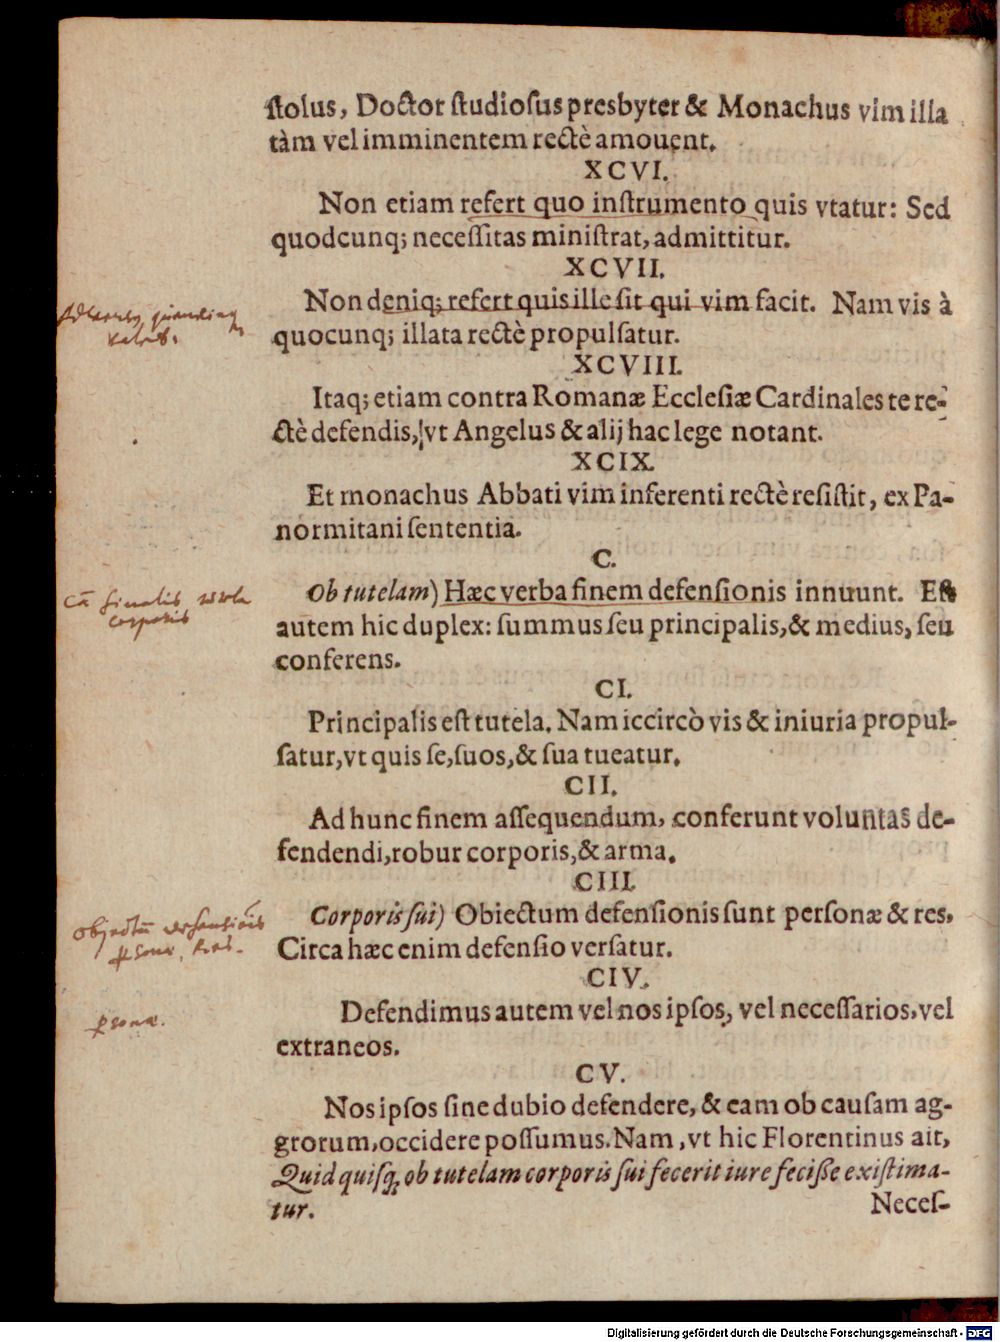 ſtolus, Doctor ſtudioſus presbyter & Monachus vim illa
tàm vel imminentem rectè amouent.
XCVI.
Non etiam refert quo inſtrumento quis vtatur: Sed
quodcunq; neceſſitas miniſtrat, admittitur.
XCVII.
Non deniq; refert quis ille ſit qui vim facit. Nam vis à
quocunq; illata rectè propulſatur.
XCVIII.
Itaq; etiam contra Romanæ Eccleſiæ Cardinales te re-
ctè defendis, vt Angelus & alij hac lege notant.
XCIX.
Et monachus Abbati vim inferenti rectè reſiſtit, ex Pa-
normitani ſententia.
C.
Ob tutelam) Hæc verba finem defenſionis innuunt. Eſt
autem hic duplex: ſummus ſeu principalis, & medius, ſeu
conferens.
finalis
corporis
CI.
Principalis eſt tutela. Nam iccircò vis & iniuria propul-
ſatur, vt quis ſe, ſuos, & ſua tueatur.
CII.
Ad hunc finem aſſequendum, conferunt voluntas de-
fendendi, robur corporis, & arma.
CIII.
Corporis ſui) Obiectum defenſionis ſunt perſonæ & res.
Circa hæc enim defenſio verſatur.
CIV.
Defendimus autem vel nos ipſos, vel neceſſarios, vel
extraneos.
CV.
Nos ipſos ſine dubio defendere, & eam ob cauſam ag-
grorum, occidere poſſumus. Nam, vt hic Florentinus ait,
Quid quiſq; ob tutelam corporis ſui fecerit iure feciſſe exiſtima-
tur.
Neceſ-
Digitalisierung gefördert durch die Deutsche Forschungsgemeinschaft - DFG